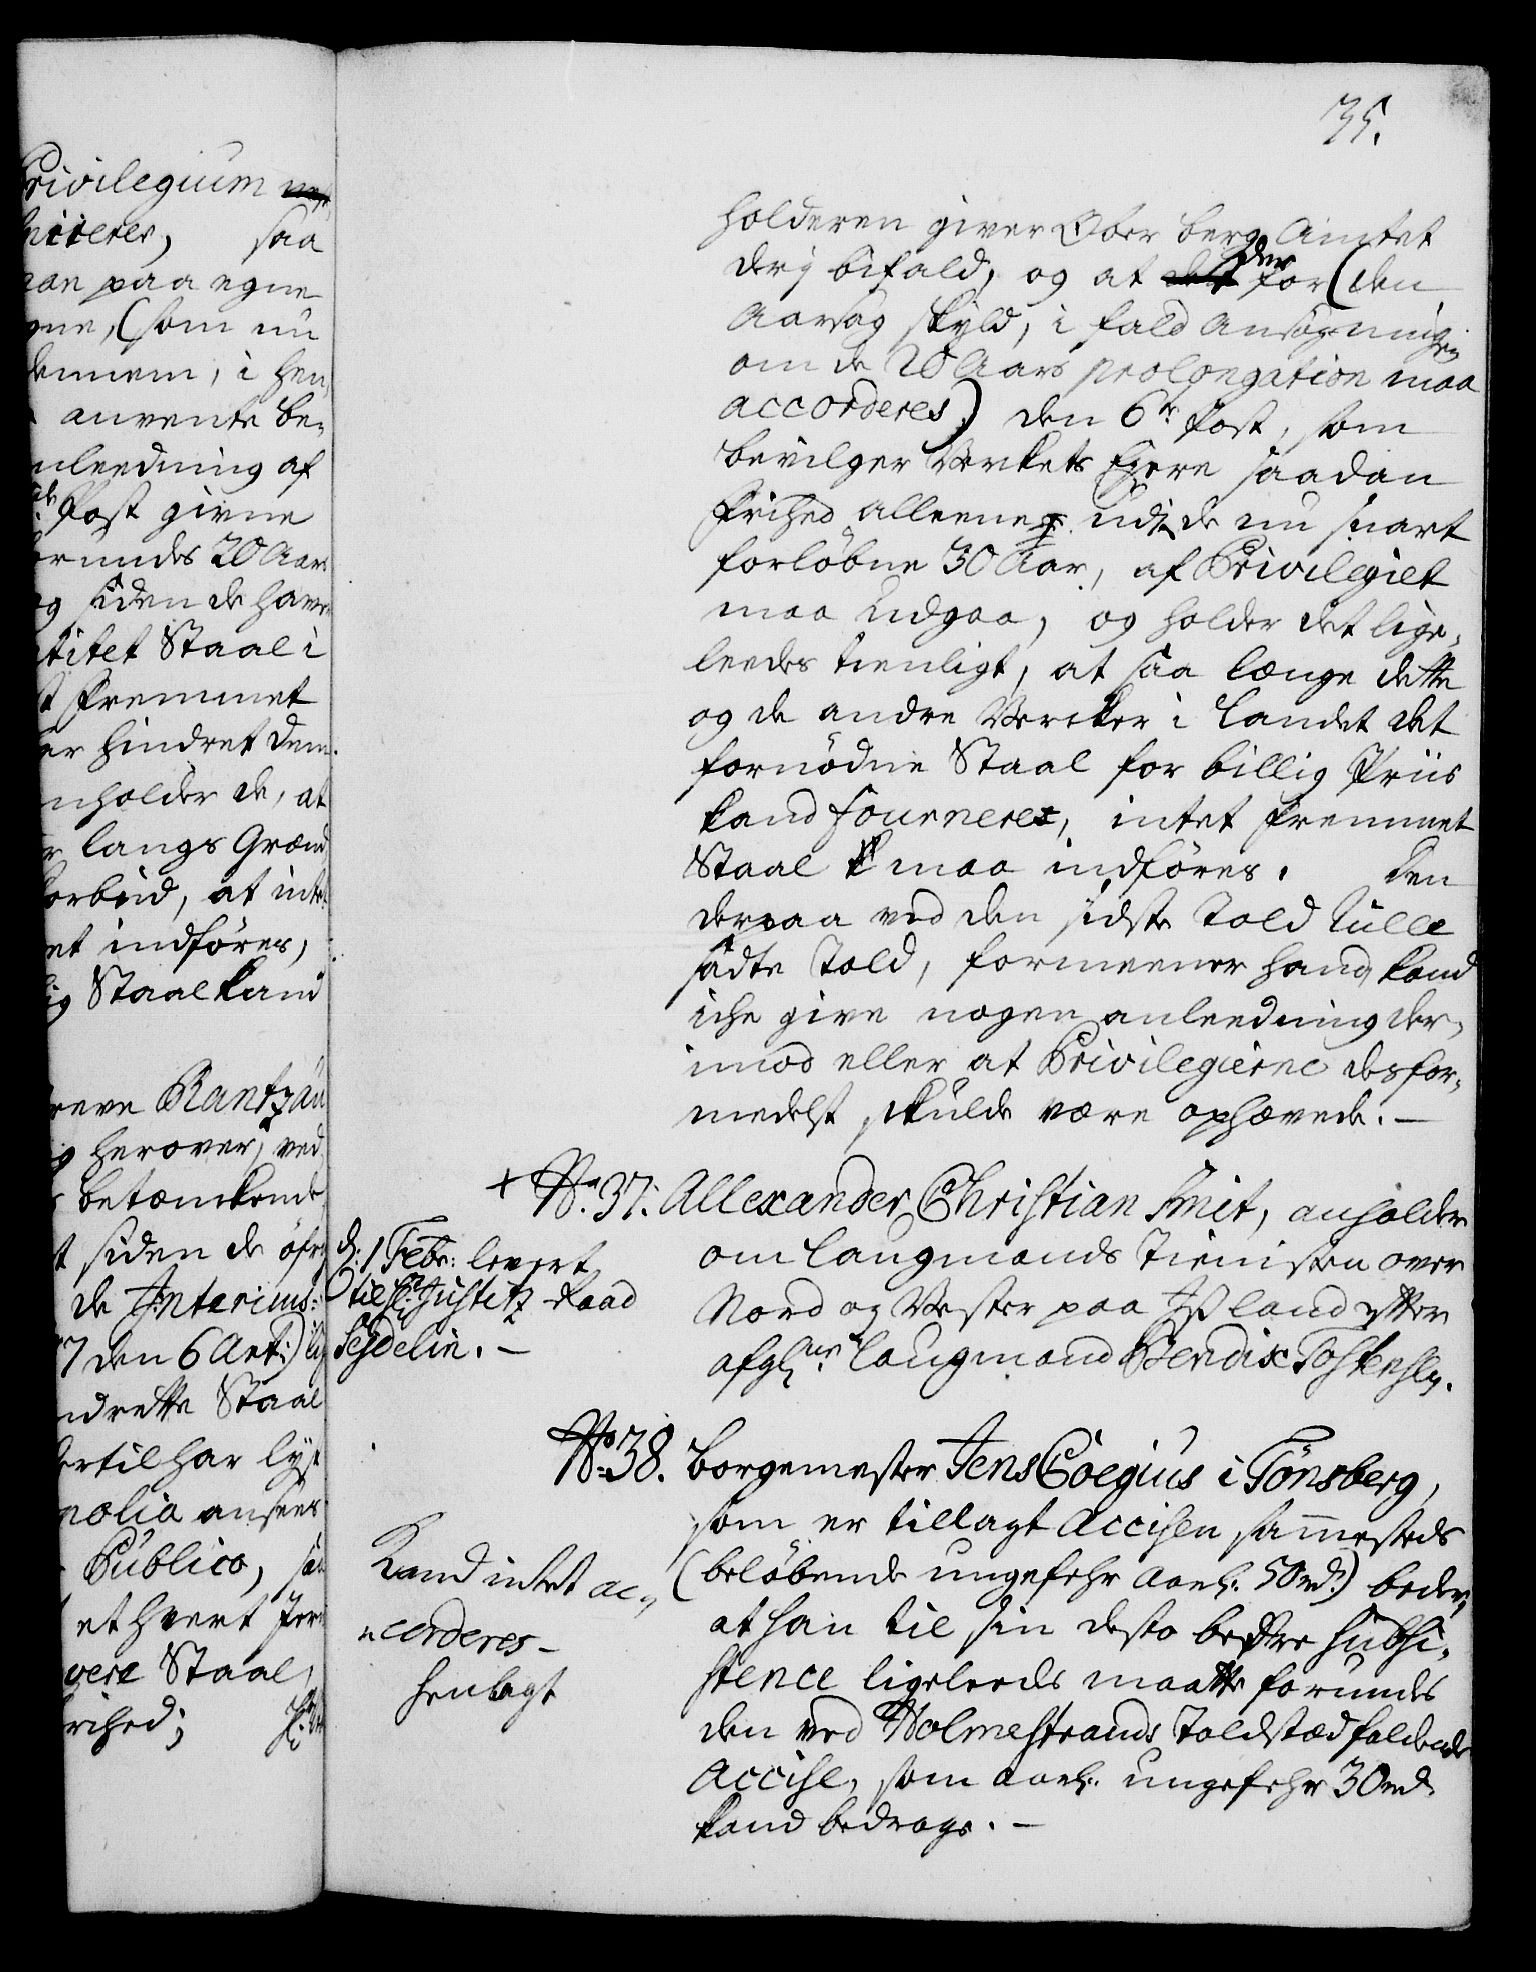 35.
rivilegium
icieres, saa
aan paa egne
gne, (som nu
dennem, i hen,
anvente be-
nleedning af
Post givne
orundes 20 Aars
og siden de have
titet Staal i
t fremmet
er hindret dem.
nholder de, at
r langs Grænd
orbud, at intet
et indføres,
ig Staal kand
reve Rantzau
g herover, ved
betænkende
t siden de øfr
de Interims:
7 den 6 Art:)
ndrette Staal
ertil har lyst
nolia ansees
Publico, saa
et hvert Jern
vere Staal,
rihed;
holderen giver Ober berg Amtet
derj bifald, og at der for (den
Aarsag skyld, i fald Ansøgningen
om de 20 Aars prolongation maa
accorderes) den 6te Post, som
bevilger Verkets Eyere saadan
Frihed alleene udj de nu snart
forløbne 30 Aar, af Privilegiet
maa udgaa, og holder det lige,
leedes tienligt, at saa længe dette
og de andre Vercker i Landet det
fornødne Staal for billig Priis
kand fourneret, intet fremmet
Staal maa indføres. Den
derpaa ved den sidste Told Rulle
sadte Told, formeener hand, kand
iche give nogen anleedning der,
imod eller at Privilegierne desfor,
medelst skulde være ophævede. –
+ No. 37. Allexander Christian Smit, anholder
om Laugmands Tienisten over
Nord og Vester paa Island efter
afgl:ne Laugmand Bendix Tostensen.
d: 1 Febr: levert
til Hr Justitz Raad
Seydelin. –
No. 38. Borgemester Jens Coegius i Tønsberg,
som er tillagt Accisen sammesteds
(beløbende ungefehr Aarl: 50 rd.) beder,
at han til sin desto bedre subsi,
stence ligeleeds maatte forundes
den ved Holmestrands Toldstæd faldende
Accise, som aarl: ungefehr 30 rd.
kand bedrage. –
Kand intet ac,,
,,corderes –
henlagt